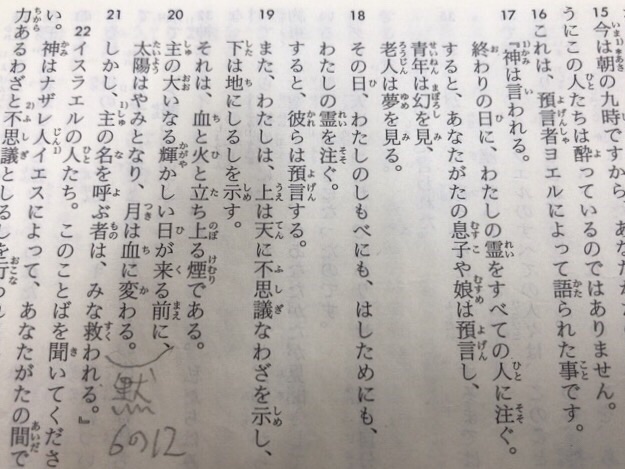 15 今は朝の九時ですから、あなたがた
うにこの人たちは酔っているのではありません。
16 これは、預言者ヨエルによって語られた事です。
17 『神は言われる。
終わりの日に、わたしの霊をすべての人に注ぐ。
すると、あなたがたの息子や娘は預言し、
青年は幻を見、
老人は夢を見る。
18 その日、わたしのしもべにも、はしためにも、
わたしの霊を注ぐ。
すると、彼らは預言する。
19 また、わたしは、上は天に不思議なわざを示し、
下は地にしるしを示す。
それは、血と火と立ち上る煙である。
20 主の大いなる輝かしい日が来る前に、
太陽はやみとなり、月は血に変わる。
21 しかし、主の名を呼ぶ者は、みな救われる。』
22 イスラエルの人たち。このことばを聞いてくださ
い。神はナザレ人イエスによって、あなたがたの間で
力あるわざと不思議としるしを行
黙
6の12